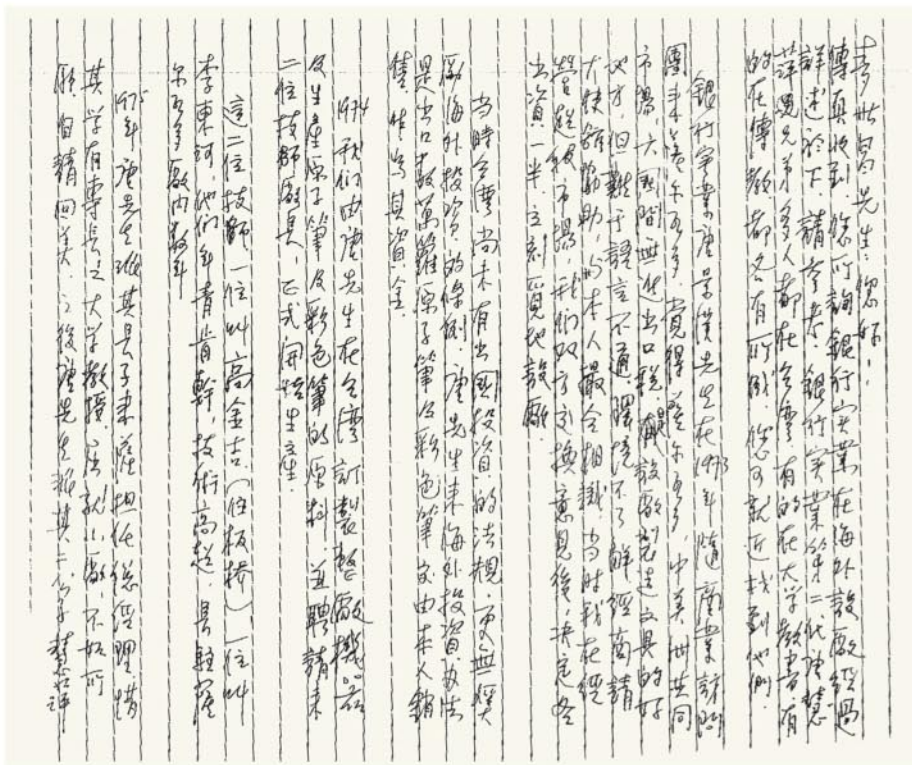 李世昌先生:您好!
傳真收到.您所詢銀行实業在海外設廠經過
詳述於下.請参考.銀行实業的第二代唐慧
萍思兄弟多人都在台灣有的在大学教書有
的在傳教都各有所成.您可就近找到他們.
銀行实業唐景漢先生在1973年隨商業訪問
團来薩尔瓦多,覚得薩尔瓦多,中美洲共同
市場六国間無進出口税,設厰製造文具的好
地方,但難于語言不通,環境不了解經商請
大使館協助,的本人最令相識当時我在經
營超級市場,我們双方交換意見後,決定各
出資一半.立刻覓地設廠.
当時台灣尚未有出国投資的法規.更無獎
勵海外投資的條例.唐先生来海外投資办法
是出口数萬籮原子筆及彩色筆交由本人銷
售作為其資金
1974我們由唐先生在台灣訂製整厰機器
及生產原子筆及彩色筆的原料.並聘請来
二位技師設具,正式開始生產.
這二位技師,一位叫高金吉(住板橋)一位叫
李東河,他們年青肯幹,技術高超,具駐薩
尔瓦多厰内数年
1975年唐先生派其長子来薩担任總經理.惜
其学有專長之大学教授.屈就小厰,不如所
願,自請回美.之後唐先生派其二公子慧評